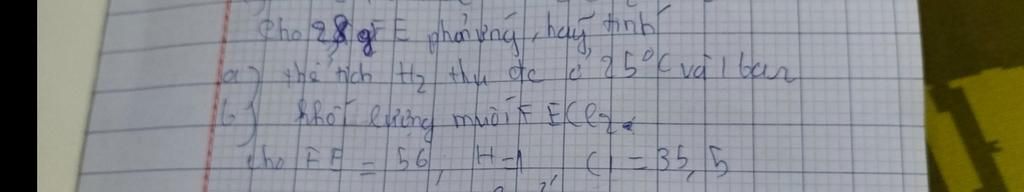 cho 2,8 g FE phản ứng, hãy tính
a) thể tích H2 thu đc ở 25°C và 1 bar
b) khối lượng muối FECl2.
cho FE = 56, H=1 Cl = 35,5